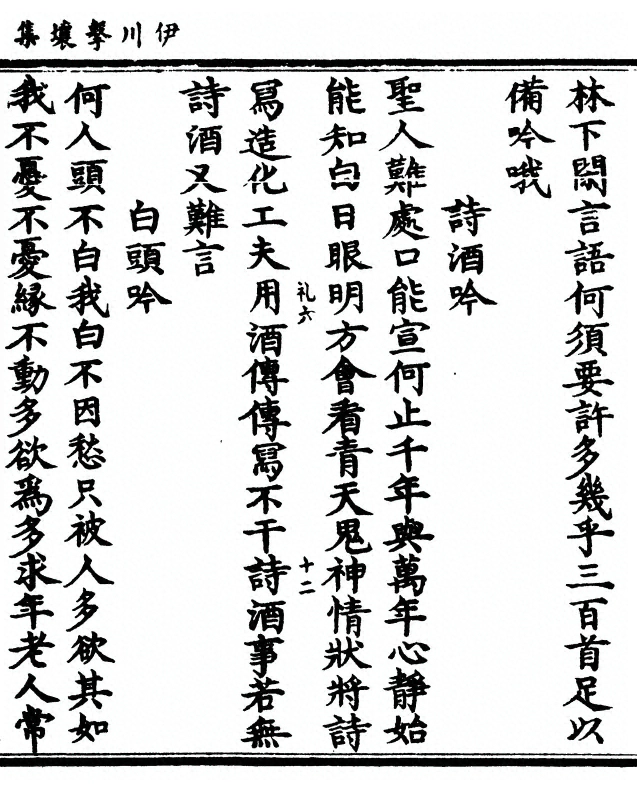 伊川擊壤集
林下閑言語何須要許多幾乎三百首足以
備吟哦
詩酒吟
聖人難處口能宣何止千年與萬年心靜始
能知白日眼明方會看青天鬼神情狀將詩
寫造化工夫用酒傳傳寫不干詩酒事若無
礼六
十二
詩酒又難言
白頭吟
何人頭不白我白不因愁只被人多欲其如
我不憂不憂緣不動多欲為多求年老人常